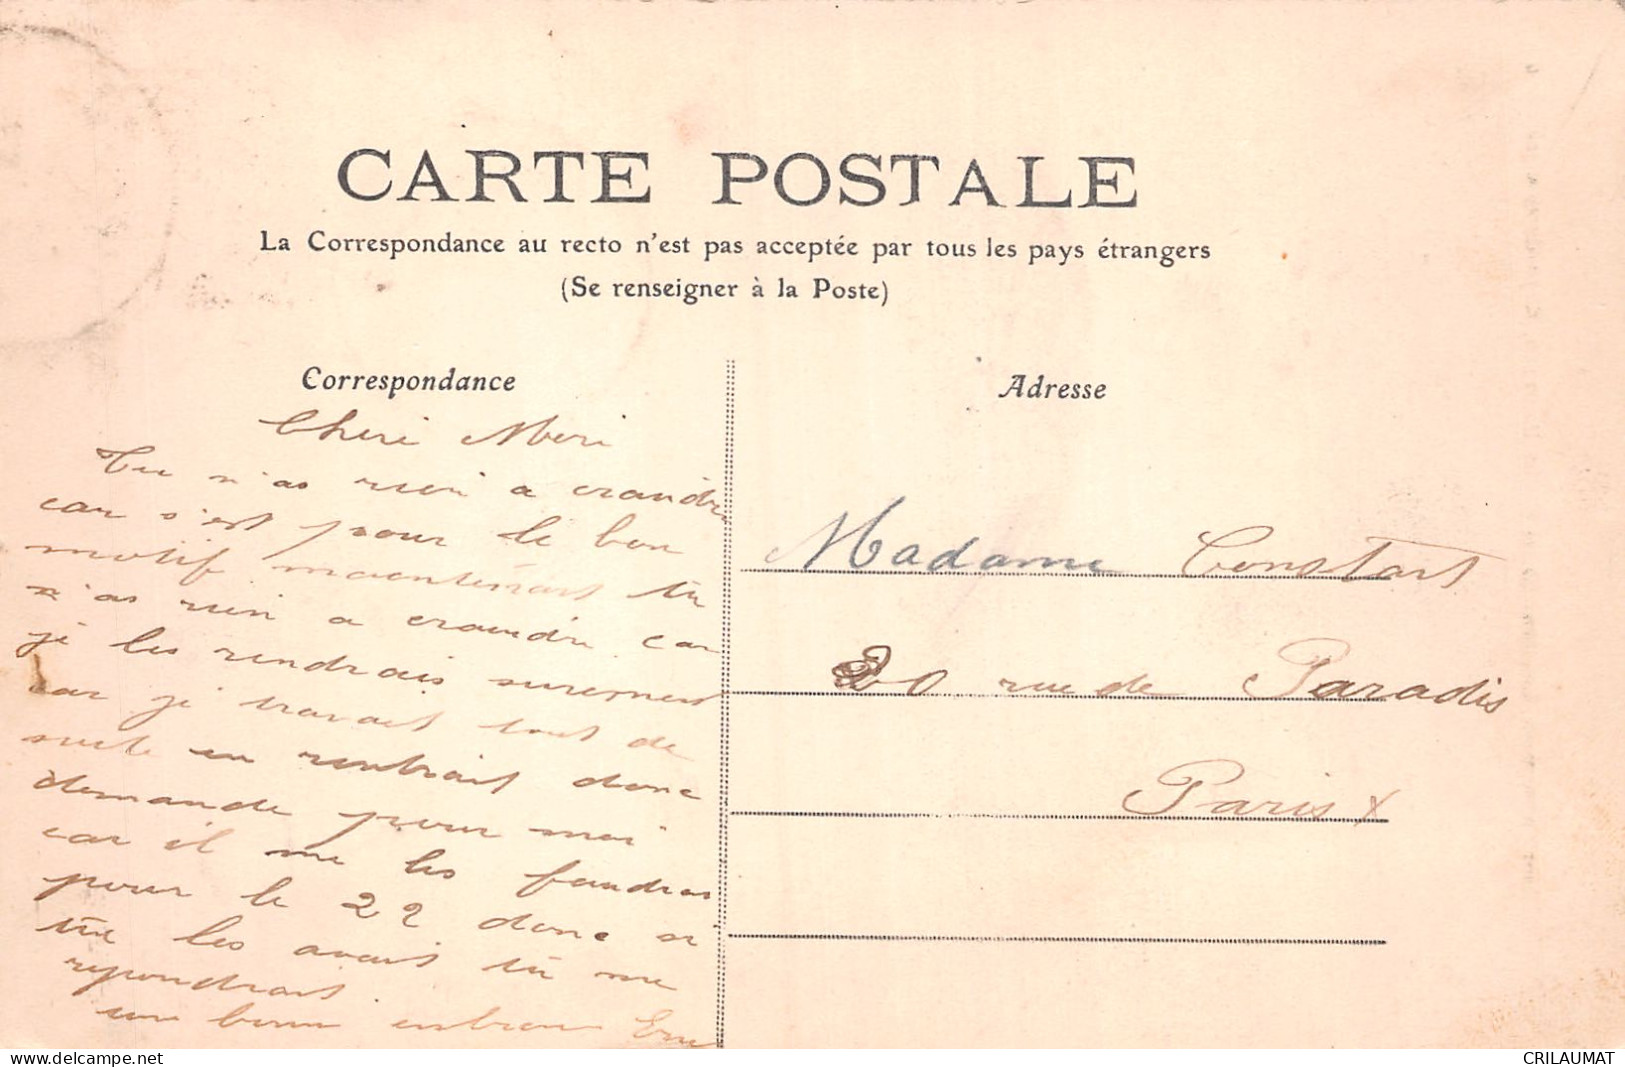 CARTE POSTALE
La Correspondance au recto n'est pas acceptée par tous les pays étrangers
(Se renseigner à la Poste)
Correspondance
Adresse
Cheri Meri
Tu n'as rien a craindre
car s'est pour le bon
motif maintenant tu
n'as rien a craindre car
je les rendrais surement
car je travail tout de
suite en rentrait donc
demande pour moi
car il me les faudras
pour le 22 donc si
tu les avais tu me
repondrais
une bonne
Madame Constart
20 rue de Paradis
Paris x
www.delcampe.net
CRILAUMAT